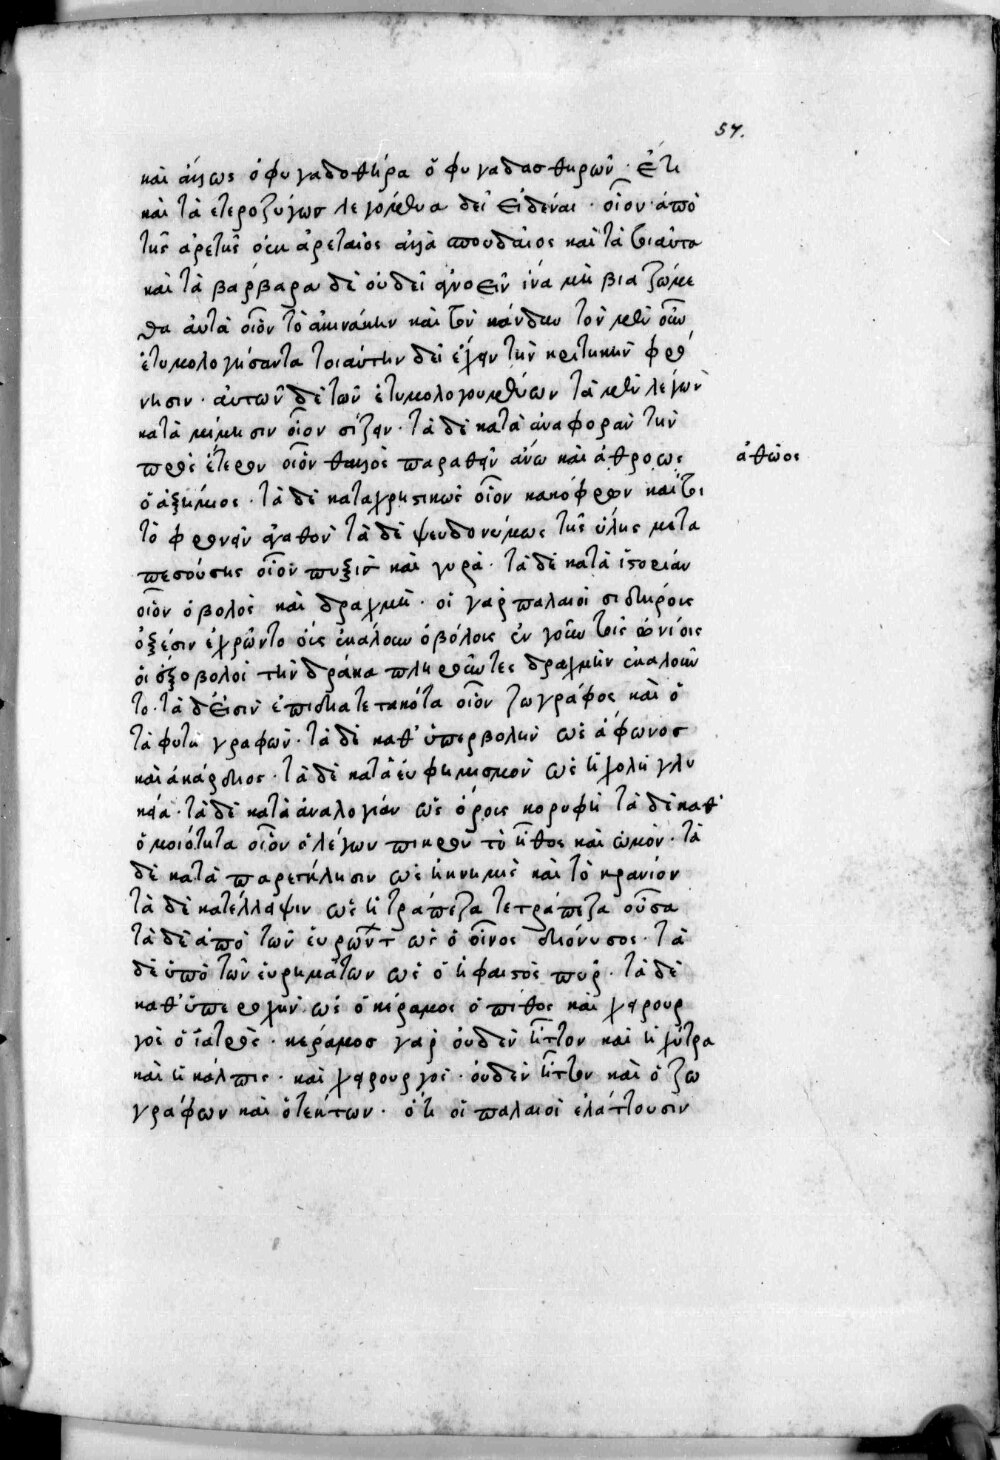 57.
καὶ ἄλλως ὁ φυγαδοθήρα ὁ φυγαδασθηρῶν· ἔτι
καὶ τὰ ἑτεροζύγως λεγόμενα δεῖ εἰδέναι· οἷον ἀπὸ
τῆς ἀρετῆς οὐκ ἀρεταῖος ἀλλὰ σπουδαῖος καὶ τὰ τοιαῦτα
καὶ τὰ βάρβαρα δὲ οὐ δεῖ ἀγνοεῖν ἵνα μὴ βιαζώμε
θα αὐτὰ οἷον τὸ ἀκινάκην καὶ τὸν κάνδυν τὸν μὲν οὖν
ἐτυμολογήσαντα τοιαύτην δεῖ ἔχειν τὴν κριτικὴν φρό
νησιν· αὐτῶν δὲ τῶν ἐτυμολογουμένων τὰ μὲν λέγων
κατὰ μίμησιν οἷον σίζειν· τὰ δὲ κατὰ ἀναφορὰν τὴν
πρὸς ἕτερον οἷον θαλλὸς παραθεῖν ἄνω καὶ ἀθρόως
ἀθῶος
ὁ ἀζήμιος· τὰ δὲ καταχρηστικῶς οἷον κακόφρων καί τοι
τὸ φρονεῖν ἀγαθὸν τὰ δὲ ψευδονύμως τῆς ὕλης μετα
πεσούσης οἷον πυξὶς καὶ γυρά· τὰ δὲ κατὰ ἱστορίαν
οἷον ὀβολὸς καὶ δραχμή· οἱ γὰρ παλαιοὶ σιδηροῖς
ὀξέσιν ἐχρῶντο οὓς ἐκάλουν ὀβόλοις ἐν γοῦν τοῖς ὠνίοις
οἱ ὀξοβολοὶ τὴν δράκα πληροῦντες δραχμὴν ἐκαλοῦν
το· τὰ δέ εἰσιν ἐπιδιατετηκότα οἷον ζωγράφος καὶ ὁ
τὰ φυτὰ γραφῶν· τὰ δὲ καθ' ὑπερβολὴν ὡς ἄφωνος
καὶ ἀκάρδιος· τὰ δὲ κατὰ εὐφημισμὸν ὡς ἡ χολὴ γλυ
κέα· τὰ δὲ κατὰ ἀναλογίαν ὡς ὄρους κορυφὴ τὰ δὲ καθ'
ὁμοιότητα οἷον ὁ λέγων πικρὸν τὸ ἦθος καὶ ὠμόν· τὰ
δὲ κατὰ παρετήλησιν ὡς ἡ κνημὶς καὶ τὸ κρανίον
τὰ δὲ κατέλλειψιν ὡς ἡ τράπεζα τετράπεζα οὖσα
τὰ δὲ ἀπὸ τῶν εὑρόντ ὡς ὁ οἶνος διόνυσος· τὰ
δὲ ὑπὸ τῶν εὑρημάτων ὡς ὁ ἥφαιστος πῦρ· τὰ δὲ
καθ' ὑπεροχὴν ὡς ὁ κέραμος ὁ πίθος καὶ χειρουρ
γὸς ὁ ἰατρός· κέραμος γὰρ οὐδὲν ἧττον καὶ ἡ χύτρα
καὶ ἡ κάλπις· καὶ χειρουργὸς· οὐδὲν ἧττον καὶ ὁ ζω
γράφων καὶ ὁ τέκτων· ὅτι οἱ παλαιοὶ ἐλάττουσιν